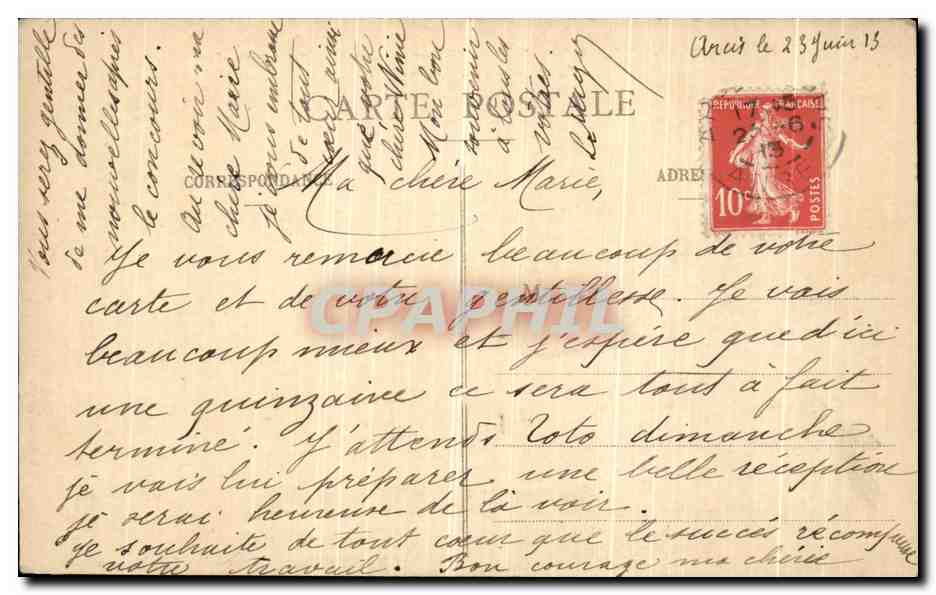 Arcis le 23 Juin 13
CARTE POSTALE
CORRESPONDANCE
ADRES
REPUBLIQUE FRANCAISE
10c
POSTES
17
6
13
Ma chère Marie,
Je vous remercie beaucoup de votre
carte et de votre gentillesse. Je vais
beaucoup mieux et j'espère que d'ici
une quinzaine ce sera tout à fait
terminé. J'attends Toto dimanche
je vais lui préparer une belle réception
je serai heureuse de la voir.
Je souhaite de tout cœur que le succès récompense
votre travail. Bon courage ma chérie
Vous serez gentille
de me donner des
nouvelles après
le concours.
Au revoir ma
chère Marie
je vous embrasse
de tout
cœur ainsi
que votre
chère
Mon bon
souvenir
à tous les
votres
M
CPAPHIL